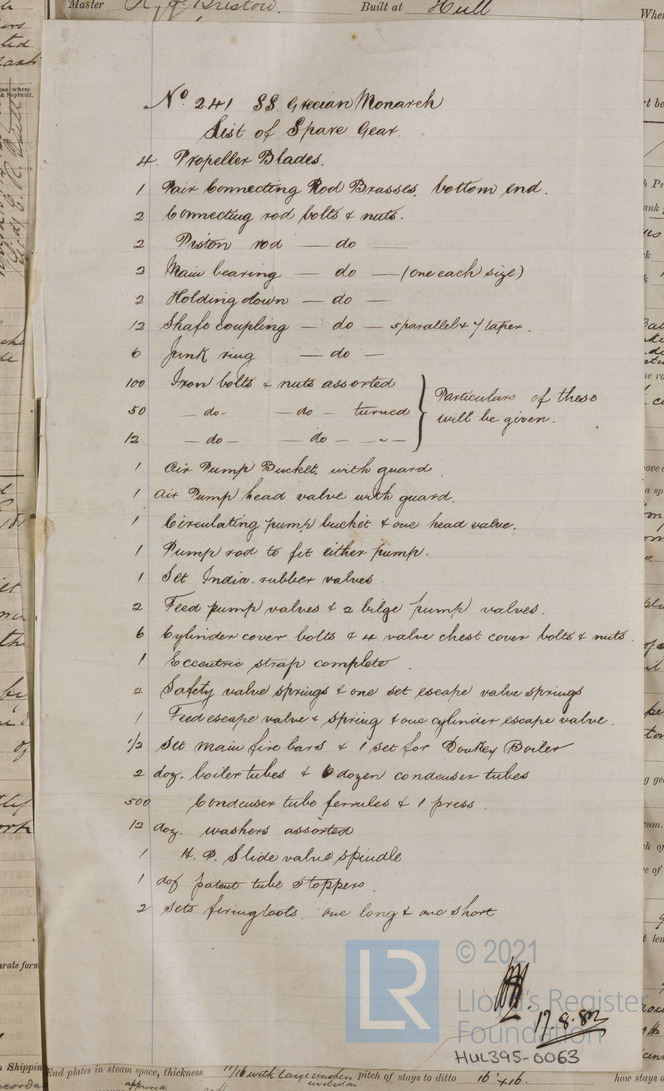 Master R, J Bristow. Built at Hull
No 241 SS Grecian Monarch
List of Spare Gear.
4 Propeller Blades.
1 Pair Connecting Rod Brasses, bottom end.
2 Connecting rod bolts & nuts.
2 Piston rod — do —
2 Main bearing — do — (one each size)
2 Holding down — do —
12 Shaft coupling — do — 5 parallel & 7 taper.
6 Junk ring — do —
100 Iron bolts & nuts assorted
50 — do — — do — turned
12 — do — — do — — " —
Particulars of these
will be given.
1 Air Pump Bucket, with guard
1 Air Pump head valve with guard.
1 Circulating pump bucket & one head valve.
1 Pump rod to fit either pump.
1 Set India-rubber valves
2 Feed pump valves & 2 bilge pump valves.
6 Cylinder cover bolts & 4 valve chest cover bolts & nuts.
1 Eccentric strap complete
2 Safety valve springs & one set escape valve springs
1 Feed escape valve & spring & one cylinder escape valve.
1/2 Set main fire bars & 1 set for Donkey Boiler
2 doz. boiler tubes & 6 dozen condenser tubes
500 Condenser tube ferrules & 1 press
12 doz. washers assorted
1 H. P. Slide valve spindle
1 doz patent tube stoppers.
2 sets firing tools. one long & one short
© 2021
LR
Lloyd's Register
Foundation
17.8.82
HUL395-0063
End plates in steam space, thickness 11/16 with large pitch of stays to ditto 16" x 16 how stays